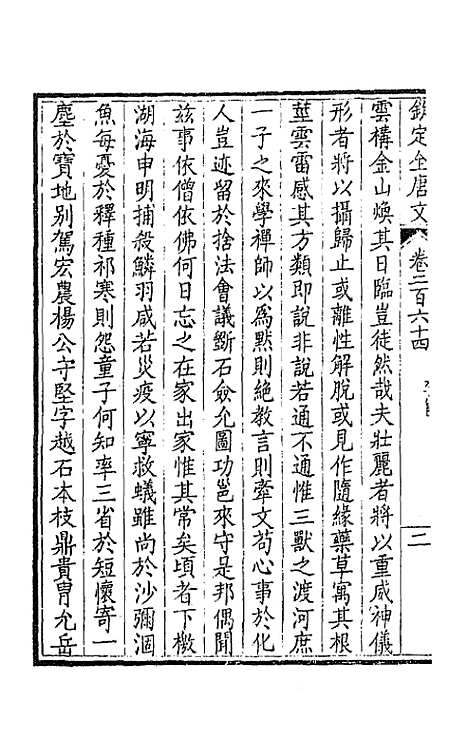 欽定全唐文 卷二百六十四 二
雲構金山煥其日臨豈徒然哉夫壯麗者將以重威神儀
形者將以攝歸止或離性解脫或見作隨緣藥草寓其根
莖雲雷感其方類即說非說若通不通惟三獸之渡河庶
一子之來學禪師以為默則絕教言則牽文苟心事於化
人豈迹留於捨法會議斲石僉允圖功邕來守是邦偶聞
茲事依僧依佛何日忘之在家出家惟其常矣頃者下檄
湖海申明捕殺鱗羽咸若災疫以寧救蟻雖尚於沙彌涸
魚每憂於釋種祁寒則怨童子何知率三省於短懷寄一
塵於寶地別駕宏農楊公守堅字越石本枝鼎貴冑允岳